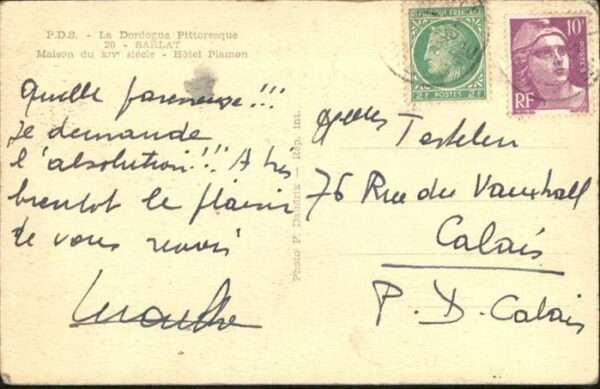 P.D.S. - La Dordogne Pittoresque
20 - SARLAT
Maison du XIVe siècle - Hôtel Plamon
Quelle paresseuse !!!
Je demande
l'absolution !!! A très
bientôt le plaisir
de vous revoir
Photo P. Daudrix — Rep. int.
REPUBLIQUE FRANÇAISE
2F POSTES 2F
10F
POSTES
RF
Testelin
76 Rue du Vauxhall
Calais
P. D. Calais